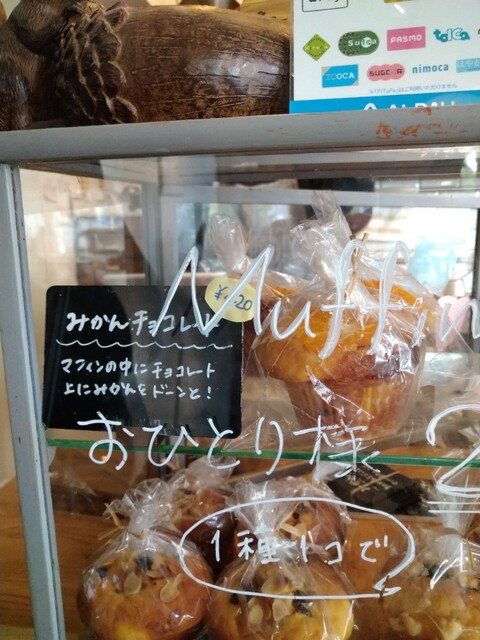 Suica PASMO TOICA
ICOCA SUGOCA nimoca
Muffin
¥
20
みかんチョコレート
マフィンの中にチョコレート
上にみかんをドーンと!
おひとり様 2
1種1コで